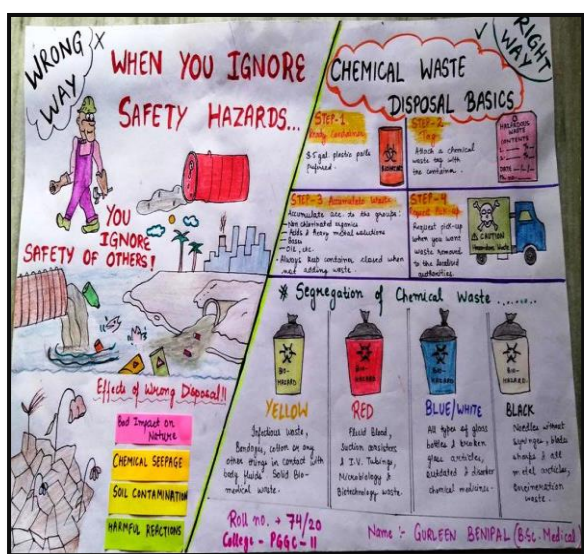 WRONG X
WAY
WHEN YOU IGNORE
SAFETY HAZARDS...
YOU
IGNORE
SAFETY OF OTHERS!
Effects of Wrong Disposal!!
Bad Impact on
Nature
CHEMICAL SEEPAGE
SOIL CONTAMINATION
HARMFUL REACTIONS
RIGHT
WAY
CHEMICAL WASTE
DISPOSAL BASICS
STEP-1
Ready Container
gal plastic pails
prefered.
STEP-2
Tag
Attach a chemical
waste tag with
the container.
HAZARDOUS
WASTE
CONTENTS
DATE
STEP-3 Accumulate Waste
Accumulate acc. to the groups:
- Non chlorinated organics
- Acids & Heavy metal solutions
- Bases
- Oil, etc.
• Always keep container closed when
not adding waste.
STEP-4
Request Pick-up
Request pick-up
when you want
waste removed
to the localised
authorities.
CAUTION
Hazardous Waste
* Segregation of Chemical Waste .......
BIO-
HAZARD
YELLOW
Infectious waste,
Bandages, cotton or any
other things in contact with
body fluids. Solid Bio-
medical waste.
BIO-
HAZARD
RED
Fluid Blood,
Suction canisters
& I.V. Tubings,
Microbiology &
Biotechnology waste.
BIO-
HAZARD
BLUE/WHITE
All types of glass
bottles & broken
glass articles,
outdated & discarder
chemical medicines.
BIO-
HAZARD
BLACK
Needles without
syringes, blades
sharps & all
metal articles,
waste.
Roll no. → 74/20
College - PGGC-11
Name :- GURLEEN BENIPAL (B.Sc. Medical